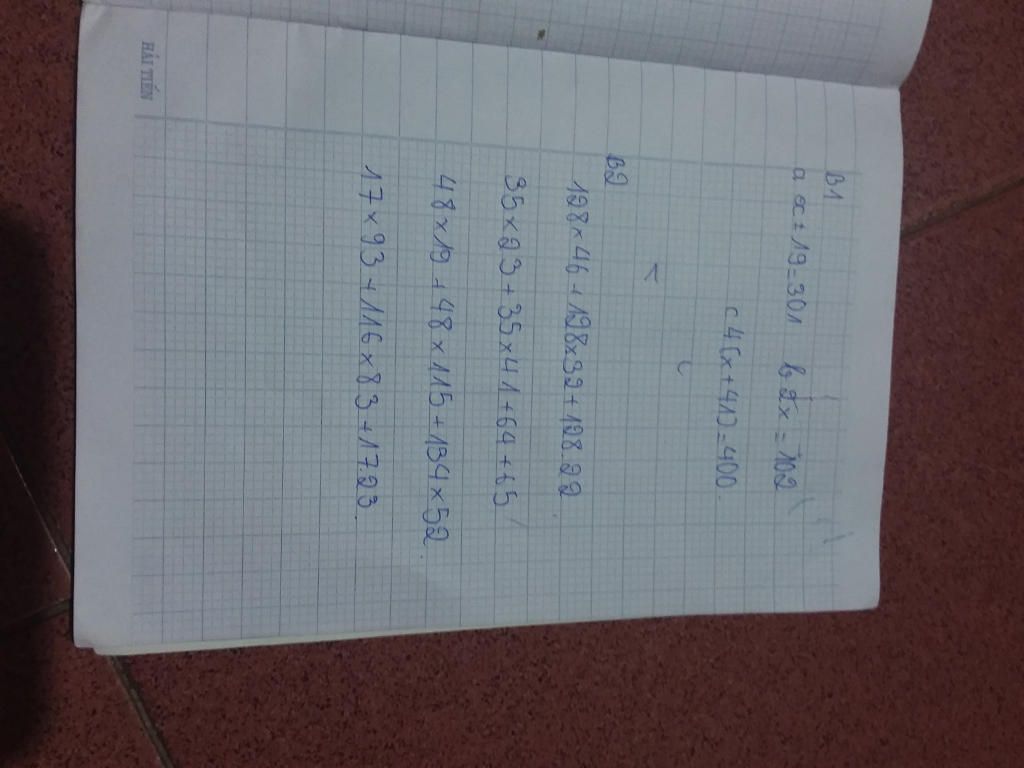 B1
a x±19=301 b 2x = 102
c 4(x+41)=400.
B2
128×46 + 128×32 + 128.22
35×23 + 35×41 + 64 + 65
48×19 + 48×115 + 134×52.
17×93 + 116×83 + 17.23.
HẢI TIẾN